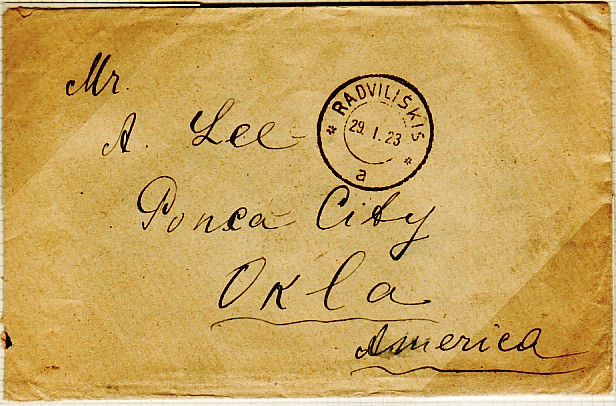 Mr.
A. Lee
Ponca City
Okla
America
RADVILIŠKIS
29. I. 23
a